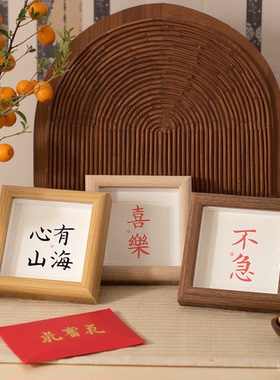 心有
山海
喜樂
不急